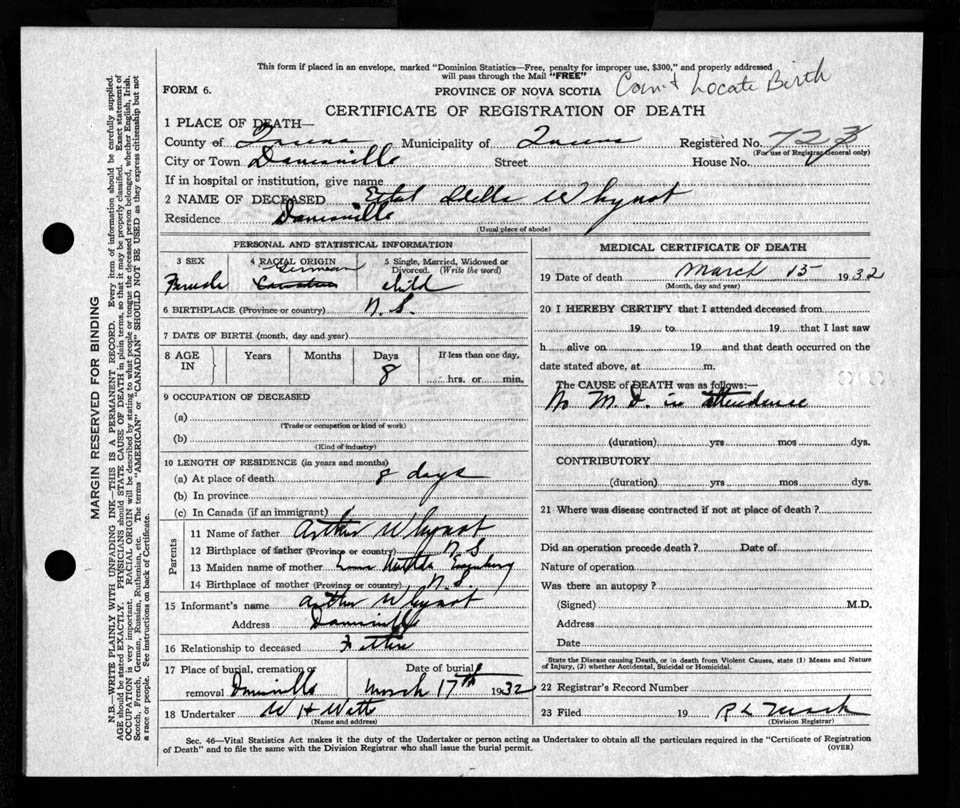 This form if placed in an envelope, marked "Dominion Statistics—Free, penalty for improper use, $300," and properly addressed
will pass through the Mail "FREE"
FORM 6.
PROVINCE OF NOVA SCOTIA
Can't Locate Birth
CERTIFICATE OF REGISTRATION OF DEATH
1 PLACE OF DEATH—
County of Queens Municipality of Queens Registered No.
(For use of Registrar General only)
City or Town Danesville Street House No.
If in hospital or institution, give name
2 NAME OF DECEASED Della Whynot
Residence Danesville
(Usual place of abode)
PERSONAL AND STATISTICAL INFORMATION
3 SEX 4 RACIAL ORIGIN 5 Single, Married, Widowed or
Divorced. (Write the word)
German
Female Canadian child
6 BIRTHPLACE (Province or country) N. S.
7 DATE OF BIRTH (month, day and year)
8 AGE IN Years Months Days If less than one day.
8 hrs. or min.
9 OCCUPATION OF DECEASED
(a)
(Trade or occupation or kind of work)
(b)
(Kind of industry)
10 LENGTH OF RESIDENCE (in years and months)
(a) At place of death 8 days
(b) In province
(c) In Canada (if an immigrant)
Parents
11 Name of father Arthur Whynot
12 Birthplace of father (Province or country) N S
13 Maiden name of mother
14 Birthplace of mother (Province or country) N. S.
15 Informant's name Arthur Whynot
Address Danesville
16 Relationship to deceased Father
17 Place of burial, cremation or Date of burial
removal Danesville March 17th 1932
18 Undertaker W H
(Name and address)
MEDICAL CERTIFICATE OF DEATH
19 Date of death March 15 1932
(Month, day and year)
20 I HEREBY CERTIFY that I attended deceased from
19 to 19 that I last saw
h alive on 19 and that death occurred on the
date stated above, at m.
The CAUSE of DEATH was as follows:—
No M D. in attendence
(duration) yrs mos dys.
CONTRIBUTORY
(duration) yrs mos dys.
21 Where was disease contracted if not at place of death?
Did an operation precede death? Date of
Nature of operation
Was there an autopsy?
(Signed) M.D.
Address
Date
State the Disease causing Death, or in death from Violent Causes, state (1) Means and Nature
of Injury, (2) whether Accidental, Suicidal or Homicidal.
22 Registrar's Record Number
23 Filed 19
(Division Registrar)
Sec. 46—Vital Statistics Act makes it the duty of the Undertaker or person acting as Undertaker to obtain all the particulars required in the "Certificate of Registration
of Death" and to file the same with the Division Registrar who shall issue the burial permit.
(OVER)
MARGIN RESERVED FOR BINDING
N.B.—WRITE PLAINLY WITH UNFADING INK—THIS IS A PERMANENT RECORD. Every item of information should be carefully supplied.
AGE should be stated EXACTLY. PHYSICIANS should STATE CAUSE OF DEATH in plain terms, so that it may be properly classified. Exact statement of
OCCUPATION is very important. RACIAL ORIGIN will be described by stating to what people or tongue the deceased person belonged, whether English, Irish,
Scotch, French, German, Russian, Ruthenian, etc. The terms "AMERICAN" or "CANADIAN" SHOULD NOT BE USED as they express citizenship but not
a race or people. See instructions on back of Certificate.